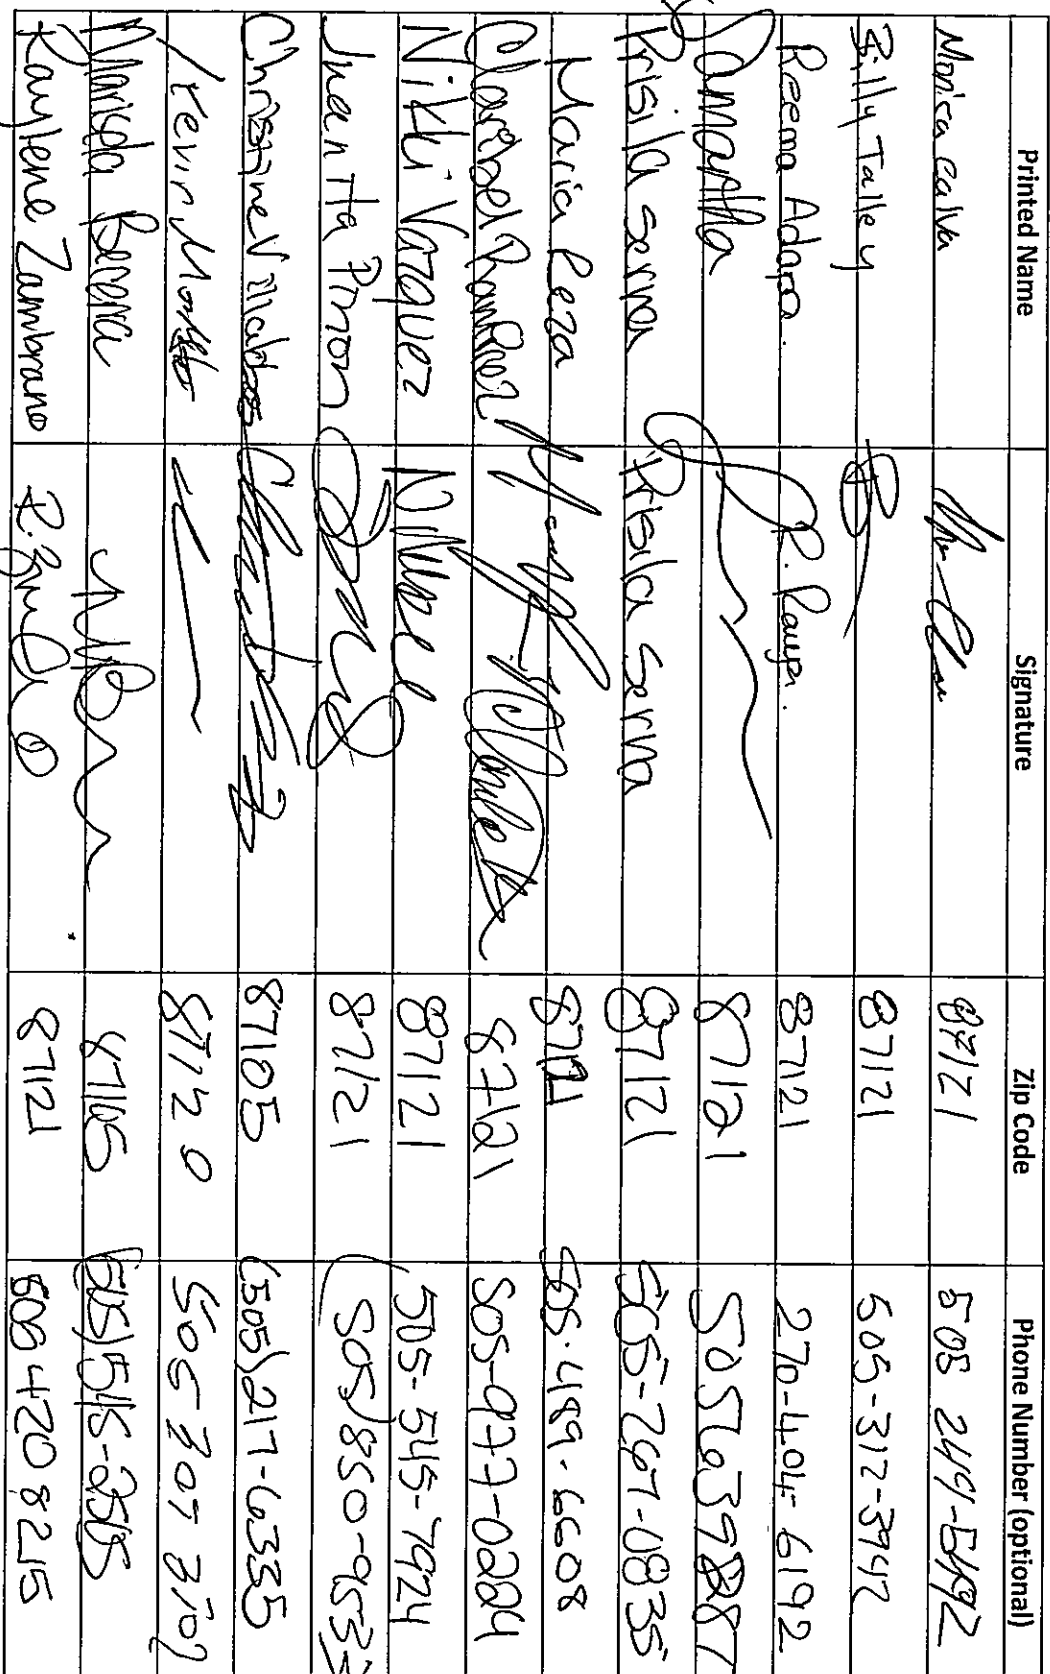 Printed Name Signature Zip Code Phone Number (optional)
Monica Calva 87121 505 249-5492
Billy Talley 87121 505-312-3942
Reema Adapa. R. Raupa. 87121 270-404-6192
87121 505639887
Prisila Serna Prisila Serna 87121 505-267-0835
Maria Reza 87121 505-489-6608
Claribel Ramirez 87121 505-977-0224
Nikki Vazquez 87121 505-545-7924
Juanita Pinon 87121 (505)850-9533
Christine Villalobos 87105 (505)217-6335
Kevin 87120
87105 (505)
Raylene Zambrano 87121 505 420 8215